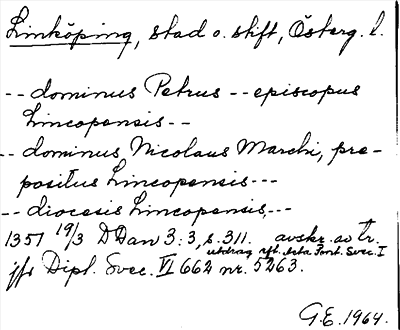 Linköping, stad o. stift, Österg. l.
-- dominus Petrus -- episcopus
Lincopensis --
-- dominus Nicolaus Marchi, pre-
positus Lincopensis ---
-- diocesis Lincopensis ---
1351 19/3 DDan 3:3, s. 311. avskr. av tr.
utdrag eft. Acta Pont. Svec. I
jfr Dipl. Svec. VI 662 nr. 5263.
G.E. 1964.